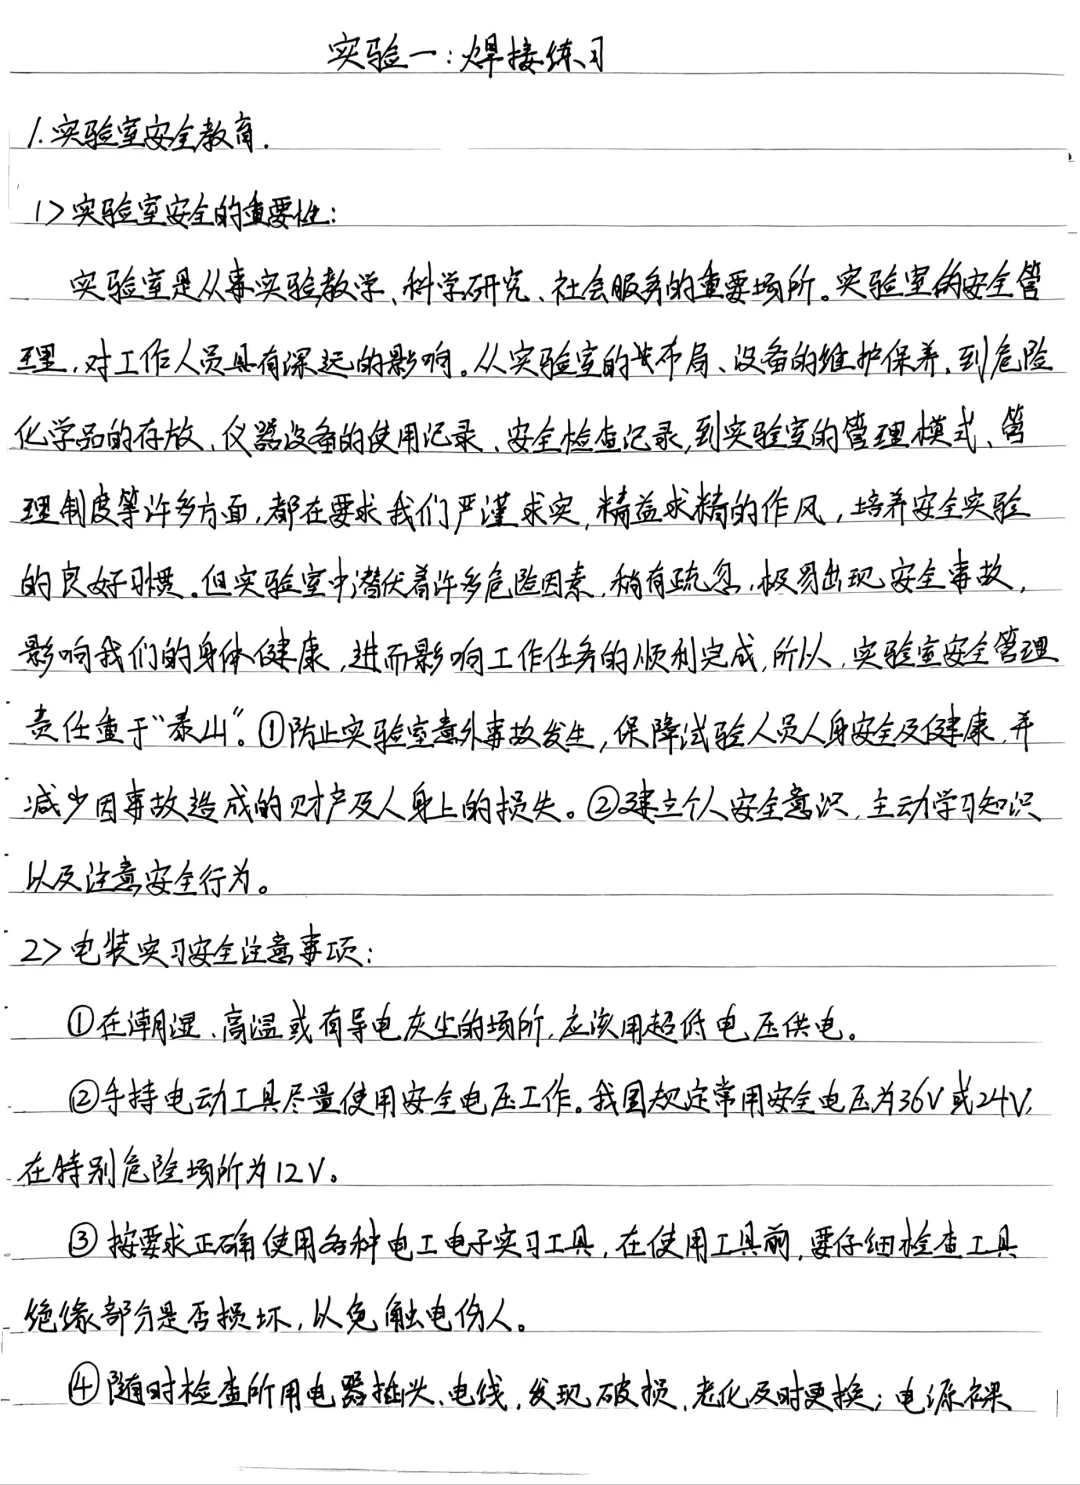 实验一:焊接练习
1.实验室安全教育.
1>实验室安全的重要性:
实验室是从事实验教学、科学研究、社会服务的重要场所。实验室的安全管
理,对工作人员具有深远的影响。从实验室的布局、设备的维护保养,到危险
化学品的存放、仪器设备的使用记录、安全检查记录,到实验室的管理模式、管
理制度等许多方面,都在要求我们严谨求实,精益求精的作风,培养安全实验
的良好习惯。但实验室中潜伏着许多危险因素,稍有疏忽,极易出现安全事故,
影响我们的身体健康,进而影响工作任务的顺利完成,所以,实验室安全管理
责任重于“泰山”。①防止实验室意外事故发生,保障试验人员人身安全及健康,并
减少因事故造成的财产及人身上的损失。②建立个人安全意识,主动学习知识
以及注意安全行为。
2>电装实习安全注意事项:
①在潮湿、高温或有导电灰尘的场所,应该用超低电压供电。
②手持电动工具尽量使用安全电压工作。我国规定常用安全电压为36V或24V,
在特别危险场所为12V。
③按要求正确使用各种电工电子实习工具,在使用工具前,要仔细检查工具
绝缘部分是否损坏,以免触电伤人。
④随时检查所用电器插头、电线,发现破损、老化及时更换;电源裸